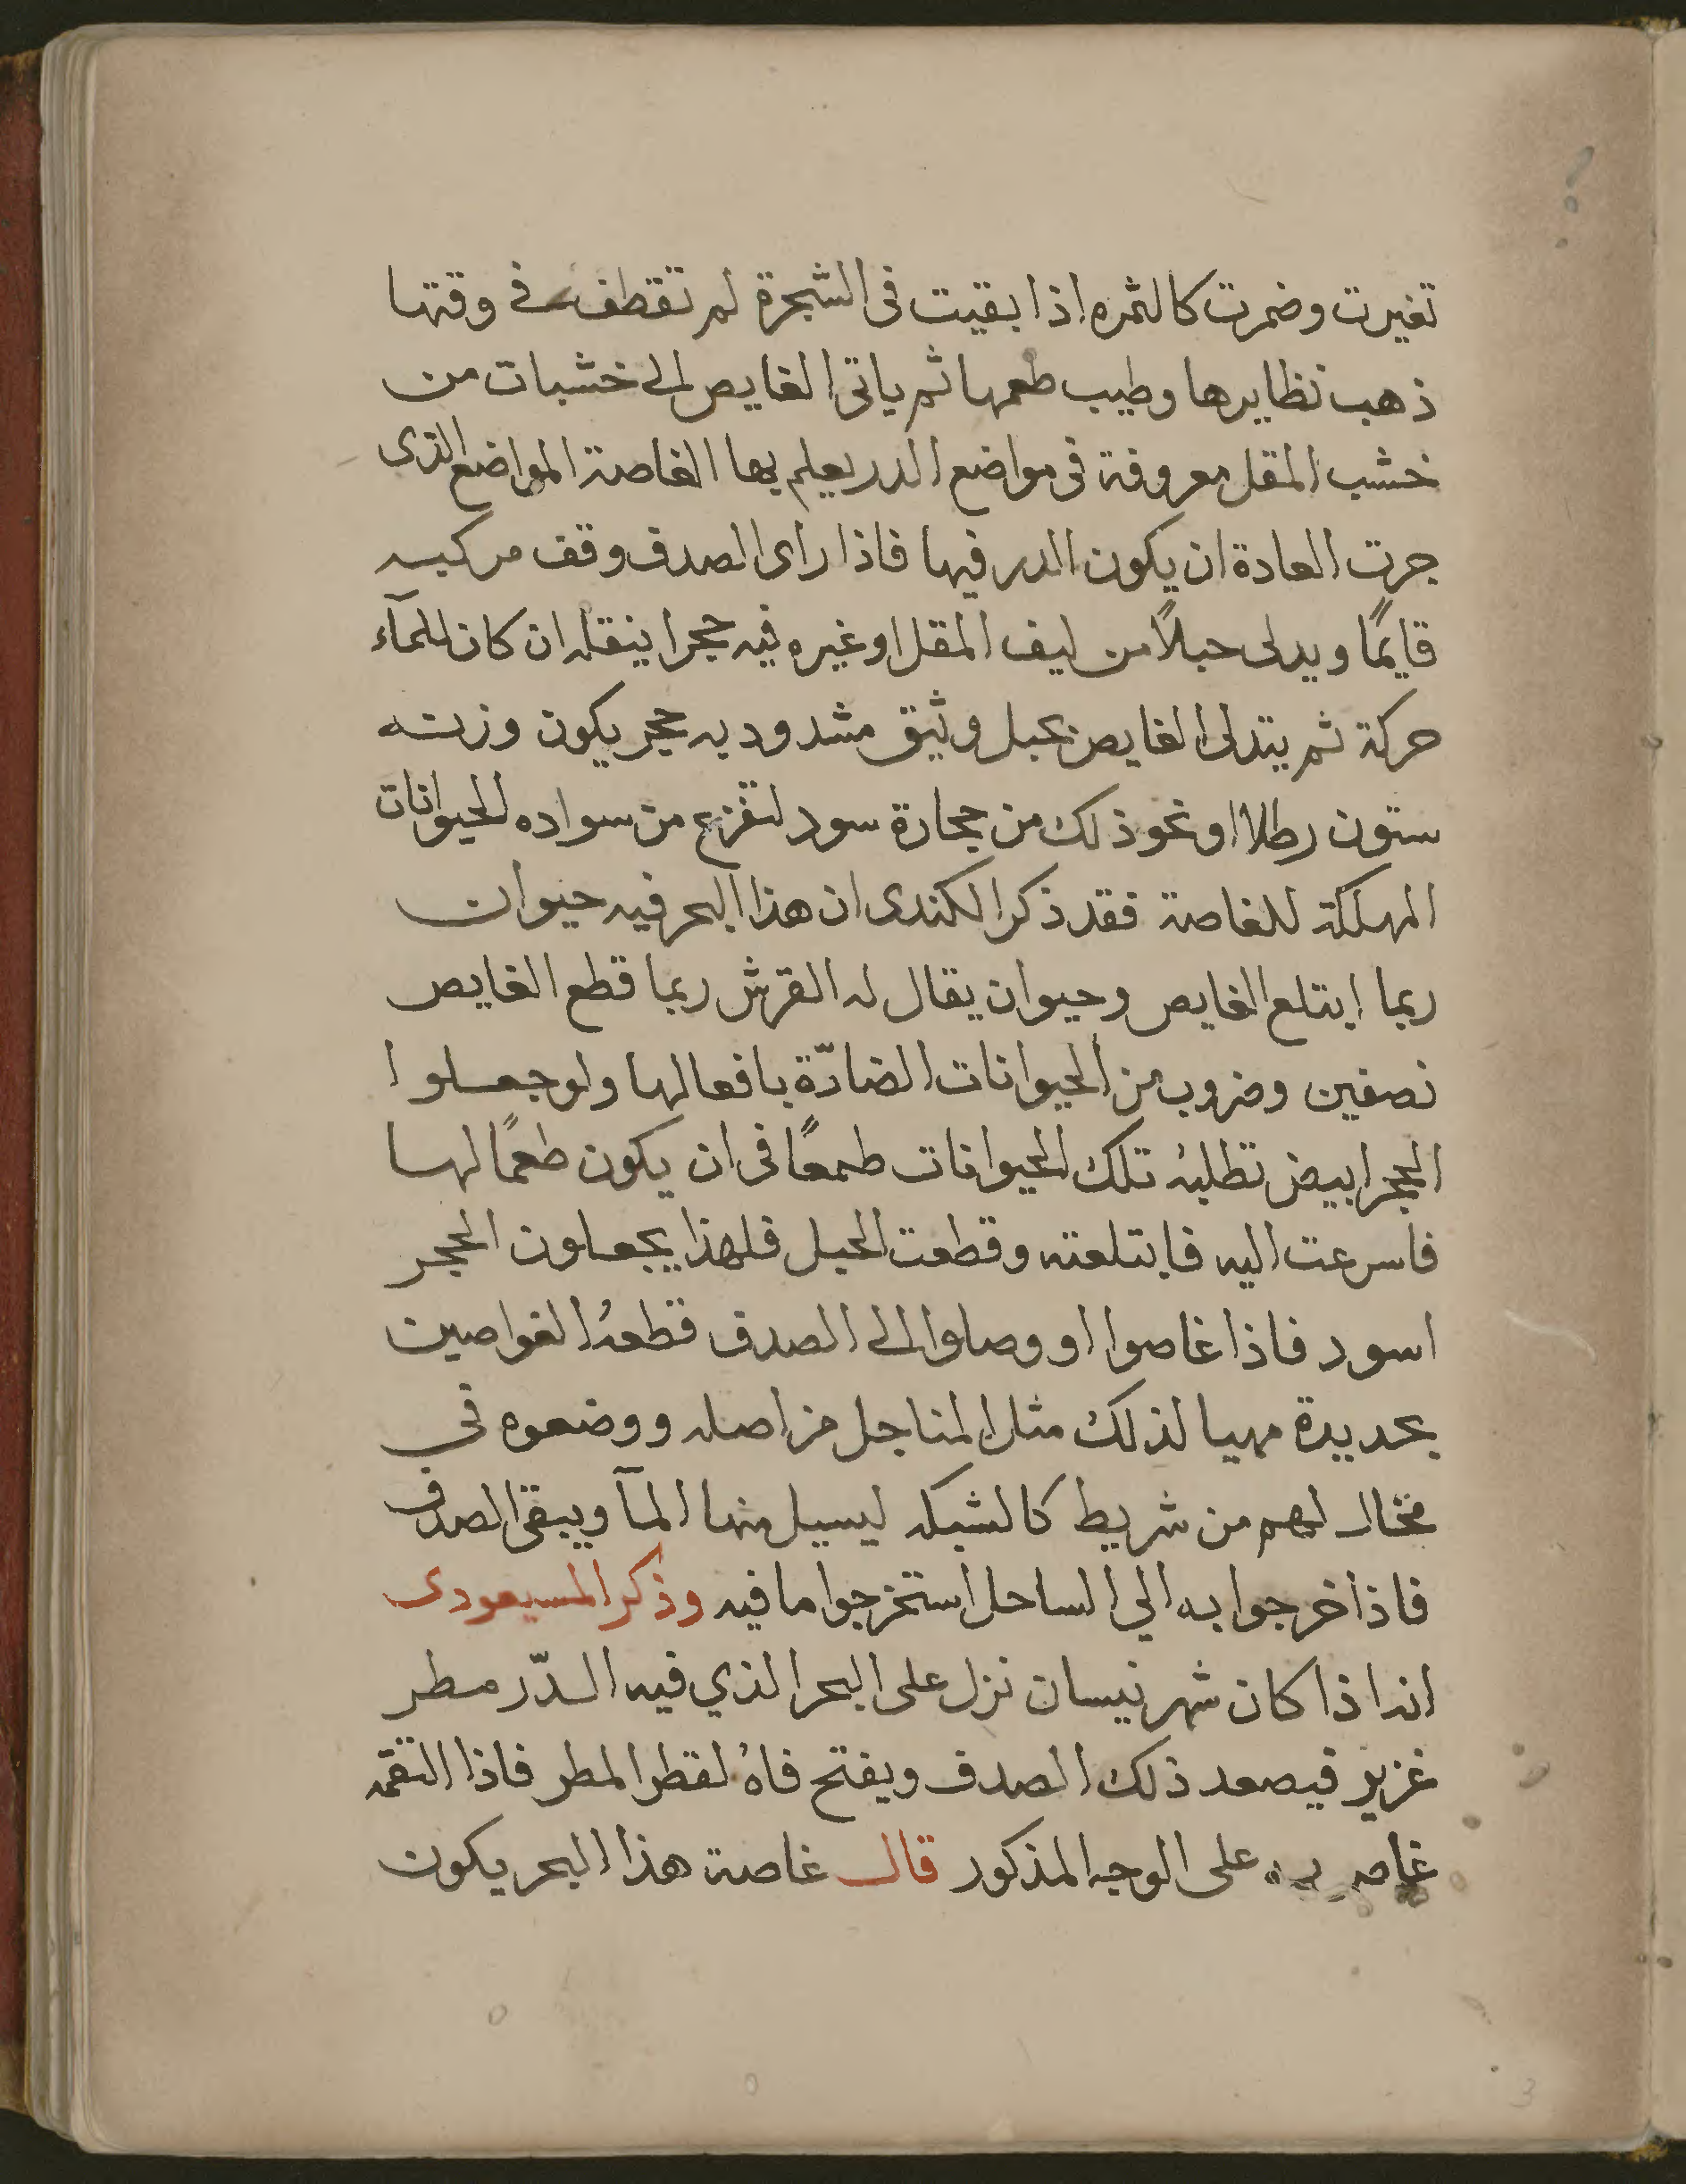 تغيرت وضمرت كالثمره اذا بقيت في الشجرة لم تقطف في وقتها
ذهب نظايرها وطيب طعمها ثم ياتي الغايص الى خشبات من
خشب المقل معروفة في مواضع الدر يعلم بها الغاصة المواضع الذى
جرت العادة ان يكون الدر فيها فاذا راى الصدف وقف مركبه
قايمًا ويدلى حبلاً من ليف المقل او غيره فيه حجرا ينقله ان كان للمآء
حركة ثم يتدلى الغايص بحبل وثيق مشدود به حجر يكون وزنه
ستون رطلا او نحو ذلك من حجارة سود لتفزع من سواده الحيوانات
المهلكة للغاصة فقد ذكر الكندى ان هذا البحر فيه حيوان
ربما ابتلع الغايص وحيوان يقال له القرش ربما قطع الغايص
نصفين وضروب من الحيوانات الضارّة بافعالها ولو جعلوا
الحجر ابيض تطلبهُ تلك الحيوانات طمعًا في ان يكون طعمًا لها
فاسرعت اليه فابتلعته وقطعت الحبل فلهذا يجعلون الحجر
اسود فاذا غاصوا او وصلوا الى الصدف قطعهُ الغواصين
بحديدة مهيا لذلك مثل المناجل من اصله ووضعوه في
مخال لهم من شريط كالشبكه ليسيل منها المآ ويبقى الصدف
فاذا خرجوا به الي الساحل استخرجوا ما فيه وذكر المسيعودى
انه اذا كان شهر نيسان نزل على البحر الذي فيه الدّر مطر
غزير فيصعد ذلك الصدف ويفتح فاهُ لقطر المطر فاذا التقمه
غاص به على الوجه المذكور قال غاصة هذا البحر يكون